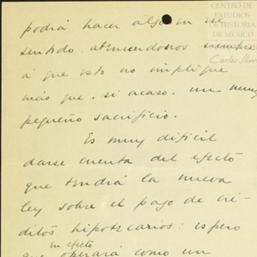 podrá hacer algo en ese
sentido ateniéndonos siempre
á que esto no implique
más que, si acaso, un muy
pequeño sacrificio.
Es muy difícil
darse cuenta del efecto
que tendrá la nueva
ley sobre el pago de cré-
ditos hipotecarios: espero
en efecto
que operará como un
CENTRO DE
ESTUDIOS
DE HISTORIA
DE MÉXICO
Carlos